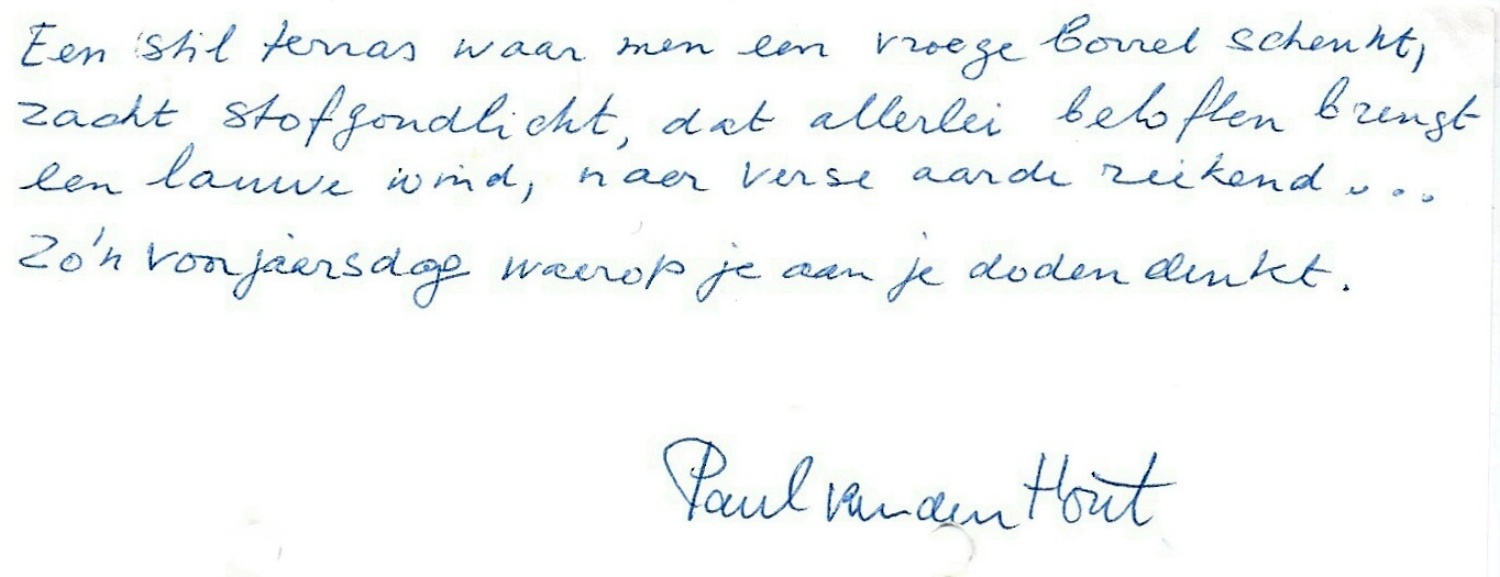 Een stil terras waar men een vroege borrel schenkt,
zacht stofgoudlicht, dat allerlei beloften brengt
een lauwe wind, naar verse aarde riekend...
Zo'n voorjaarsdag waarop je aan je doden denkt.
Paul van den Hout